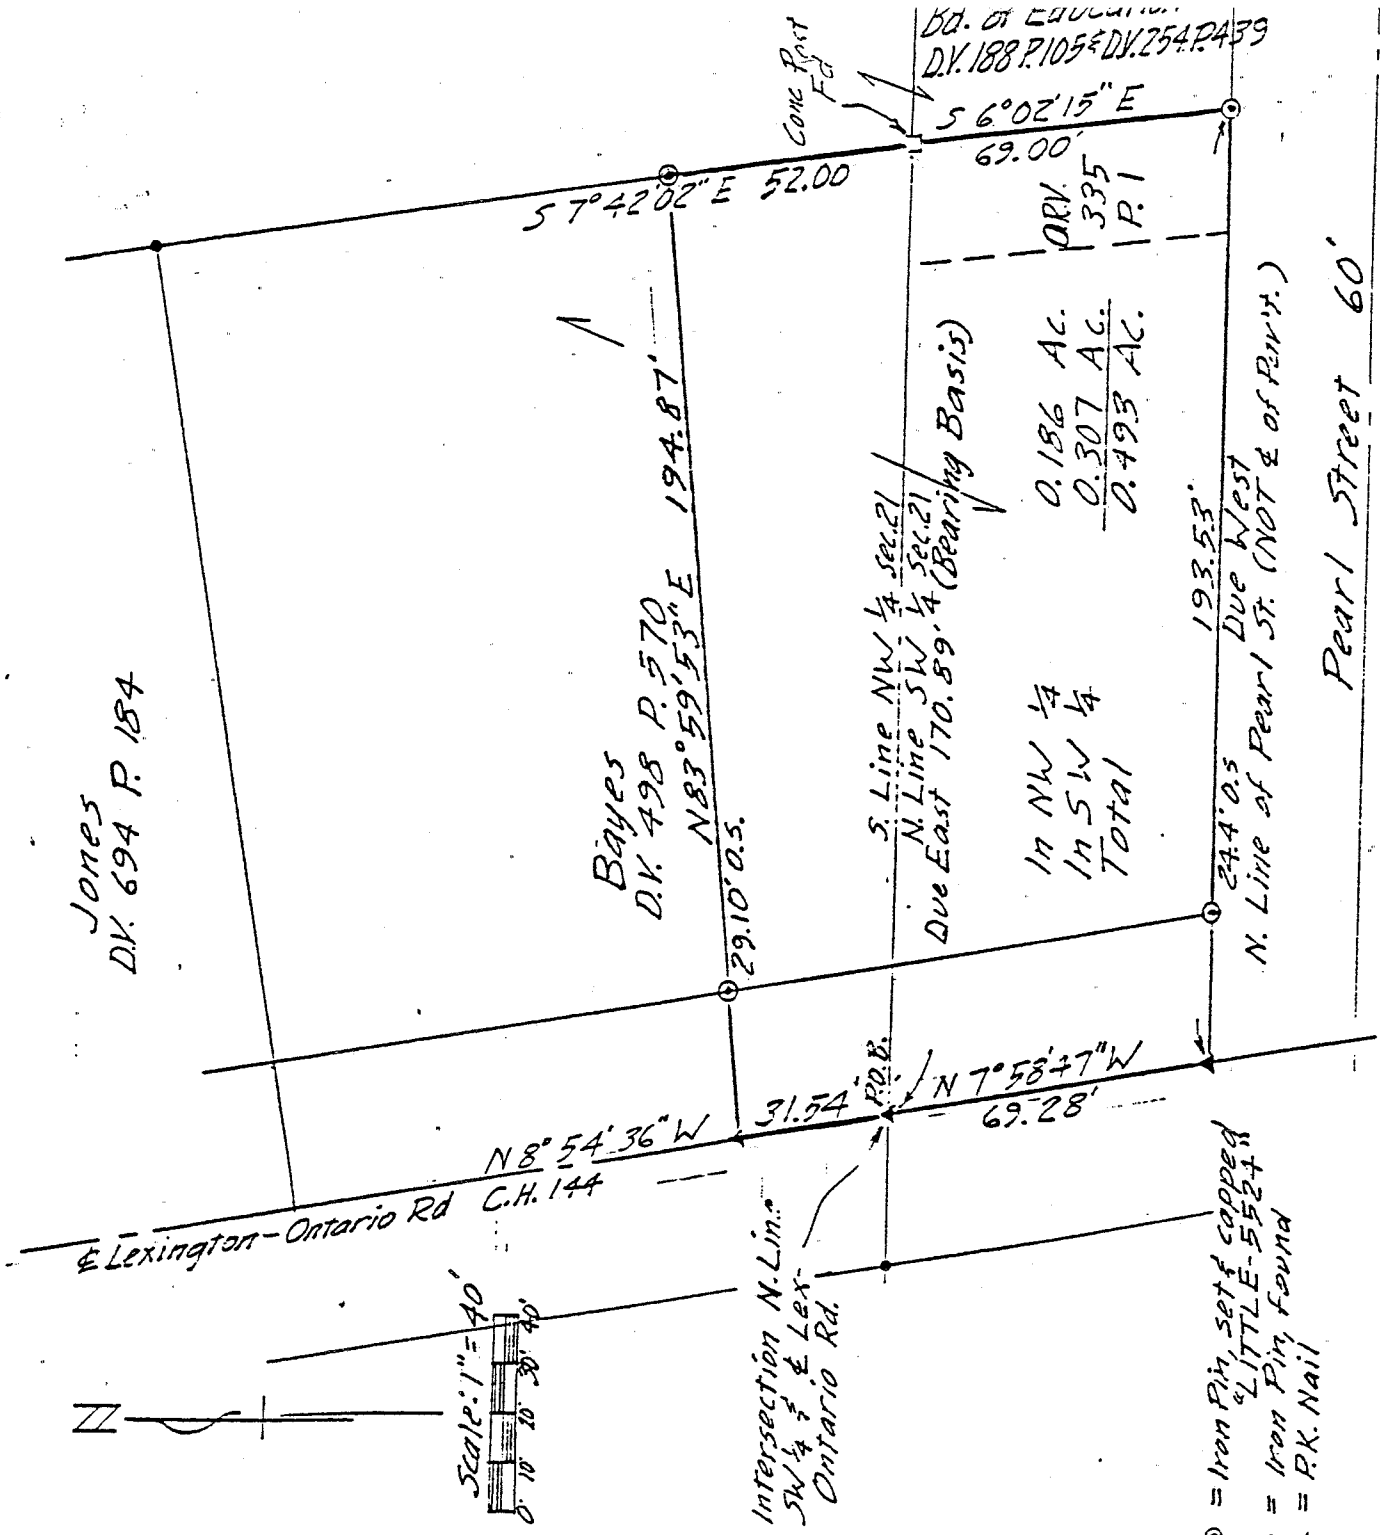 Bd. of Education
D.V. 188 P. 105 & D.V. 254 P. 439
Conc Post
Fd
S 6° 02' 15" E
69.00'
S 7° 42' 02" E 52.00
O.R.V.
335
P. 1
Jones
D.V. 694 P. 184
Bayes
D.V. 498 P. 570
N 83° 59' 53" E 194.87'
29.10' O.S.
S. Line NW 1/4 Sec. 21
N. Line SW 1/4 Sec. 21
Due East 170.89' (Bearing Basis)
In NW 1/4 0.186 Ac.
In SW 1/4 0.307 Ac.
Total 0.493 Ac.
193.53'
24.4' O.S
Due West
N. Line of Pearl St. (NOT ℄ of Pav't.)
Pearl Street 60'
N 8° 54' 36" W 31.54'
P.O.B.
N 7° 58' 47" W
69.28'
℄ Lexington-Ontario Rd C.H. 144
N
Scale: 1" = 40'
0' 10' 20' 30' 40'
Intersection N. Line
SW 1/4 & ℄ Lex-
Ontario Rd.
= Iron Pin, set & capped
"LITTLE-5524"
= Iron Pin, found
= P.K. Nail